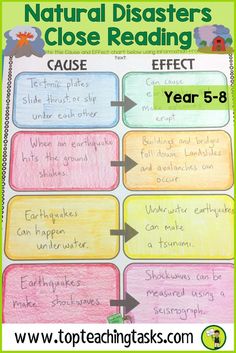 Natural Disasters
Close Reading
the Cause and Effect chart below using information
Text.
CAUSE
EFFECT
Tectonic plates
Slide thrust or slip
under each other
Can cause
erupt
Year 5-8
When an earthquake
hits the ground
shakes.
Buildings and bridges
fall down. Landslides
and avalanches can
occur.
Earthquakes
can happen
underwater.
Underwater earthquakes
can make
a tsunami.
Earthquakes
make shockwaves
Shockwaves can be
measured using a
seismograph.
www.topteachingtasks.com